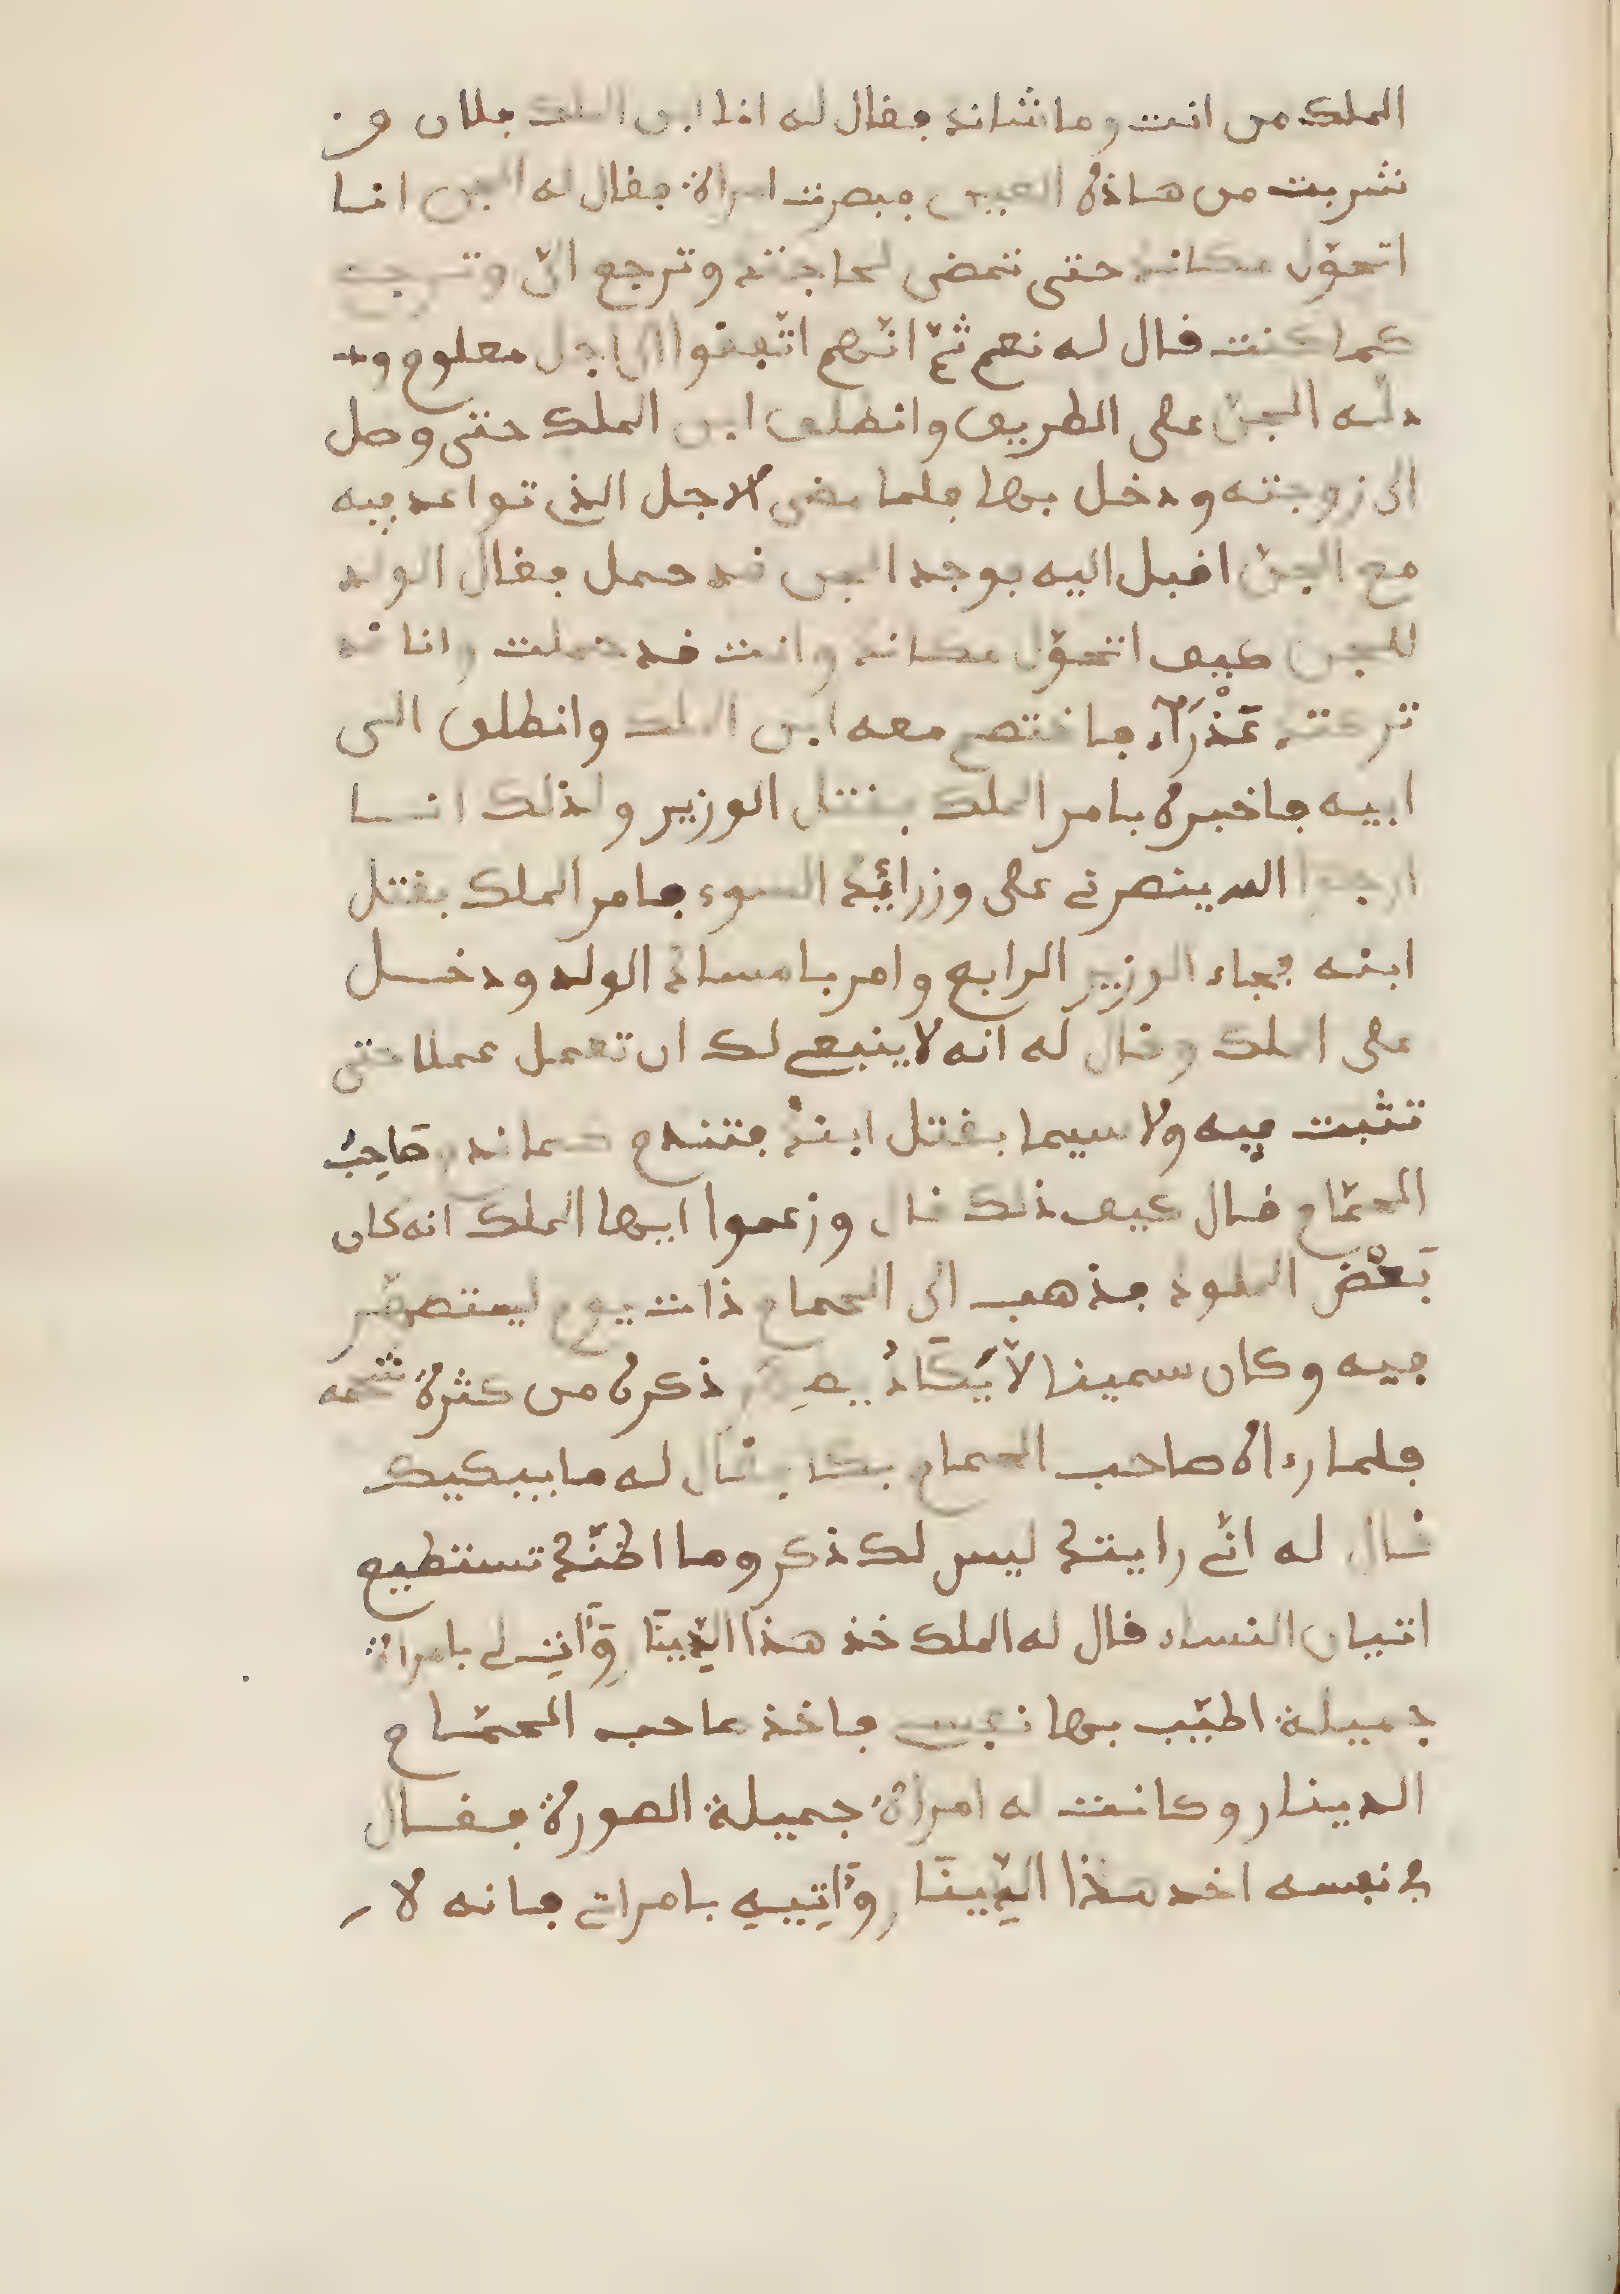 الملك من انت وما شانك فقال له انا ابن الملك فلان وقد
شربت من هاذه العين فبصرت امراة فقال له الجن انا
اتحوّل مكانك حتى تمضى لحاجتك وترجع الىّ وترجع
كما كنت قال له نعم ثمّ انّهم اتّفقوا الى اجل معلوم وقد
دلّه الجنّ على الطريق وانطلق ابن الملك حتى وصل
الى زوجته ودخل بها فلما مضى الاجل الذى تواعد فيه
مع الجنّ اقبل اليه فوجد الجن قد حمل فقال الولد
للجن كيف اتحوّل مكانك وانت قد حملت وانا قد
تركتك عَذْرَآء فاختصم معه ابن الملك وانطلق الى
ابيه فاخبره فامر الملك بقتل الوزير ولذلك انا
ارجوا الله ينصرنى على وزرائك السوء فامر الملك بقتل
ابنه فجاء الوزير الرابع وامر بامساك الولد ودخل
على الملك وقال له انه لا ينبغى لك ان تعمل عملا حتى
تثبت فيه ولا سيما بقتل ابنك فتندم كما ندم صَاحِبُ
الحمّام قال كيف ذلك قال وزعموا ايها الملك انه كان
بَعْضُ الملوك فذهب الى الحمام ذات يوم ليتطهّر
فيه وكان سمينا لا يَكَادُ يظهر ذكره من كثرة شحمه
فلما رءاه صاحب الحمام بكا فقال له ما يبكيك
قال له انّى رايتك ليس لك ذكر وما اظنّك تستطيع
اتيان النساء قال له الملك خذ هذا الدِّينَار وَأتِنِى لى بامراة
جميلة اطيّب بها نفسى فاخذ صاحب الحمّام
الدينار وكانت له امراة جميلة الصورة فقال
فى نفسه اخذ هذا الدِّينَار وَأتِيهِ بامراتى فانه لا